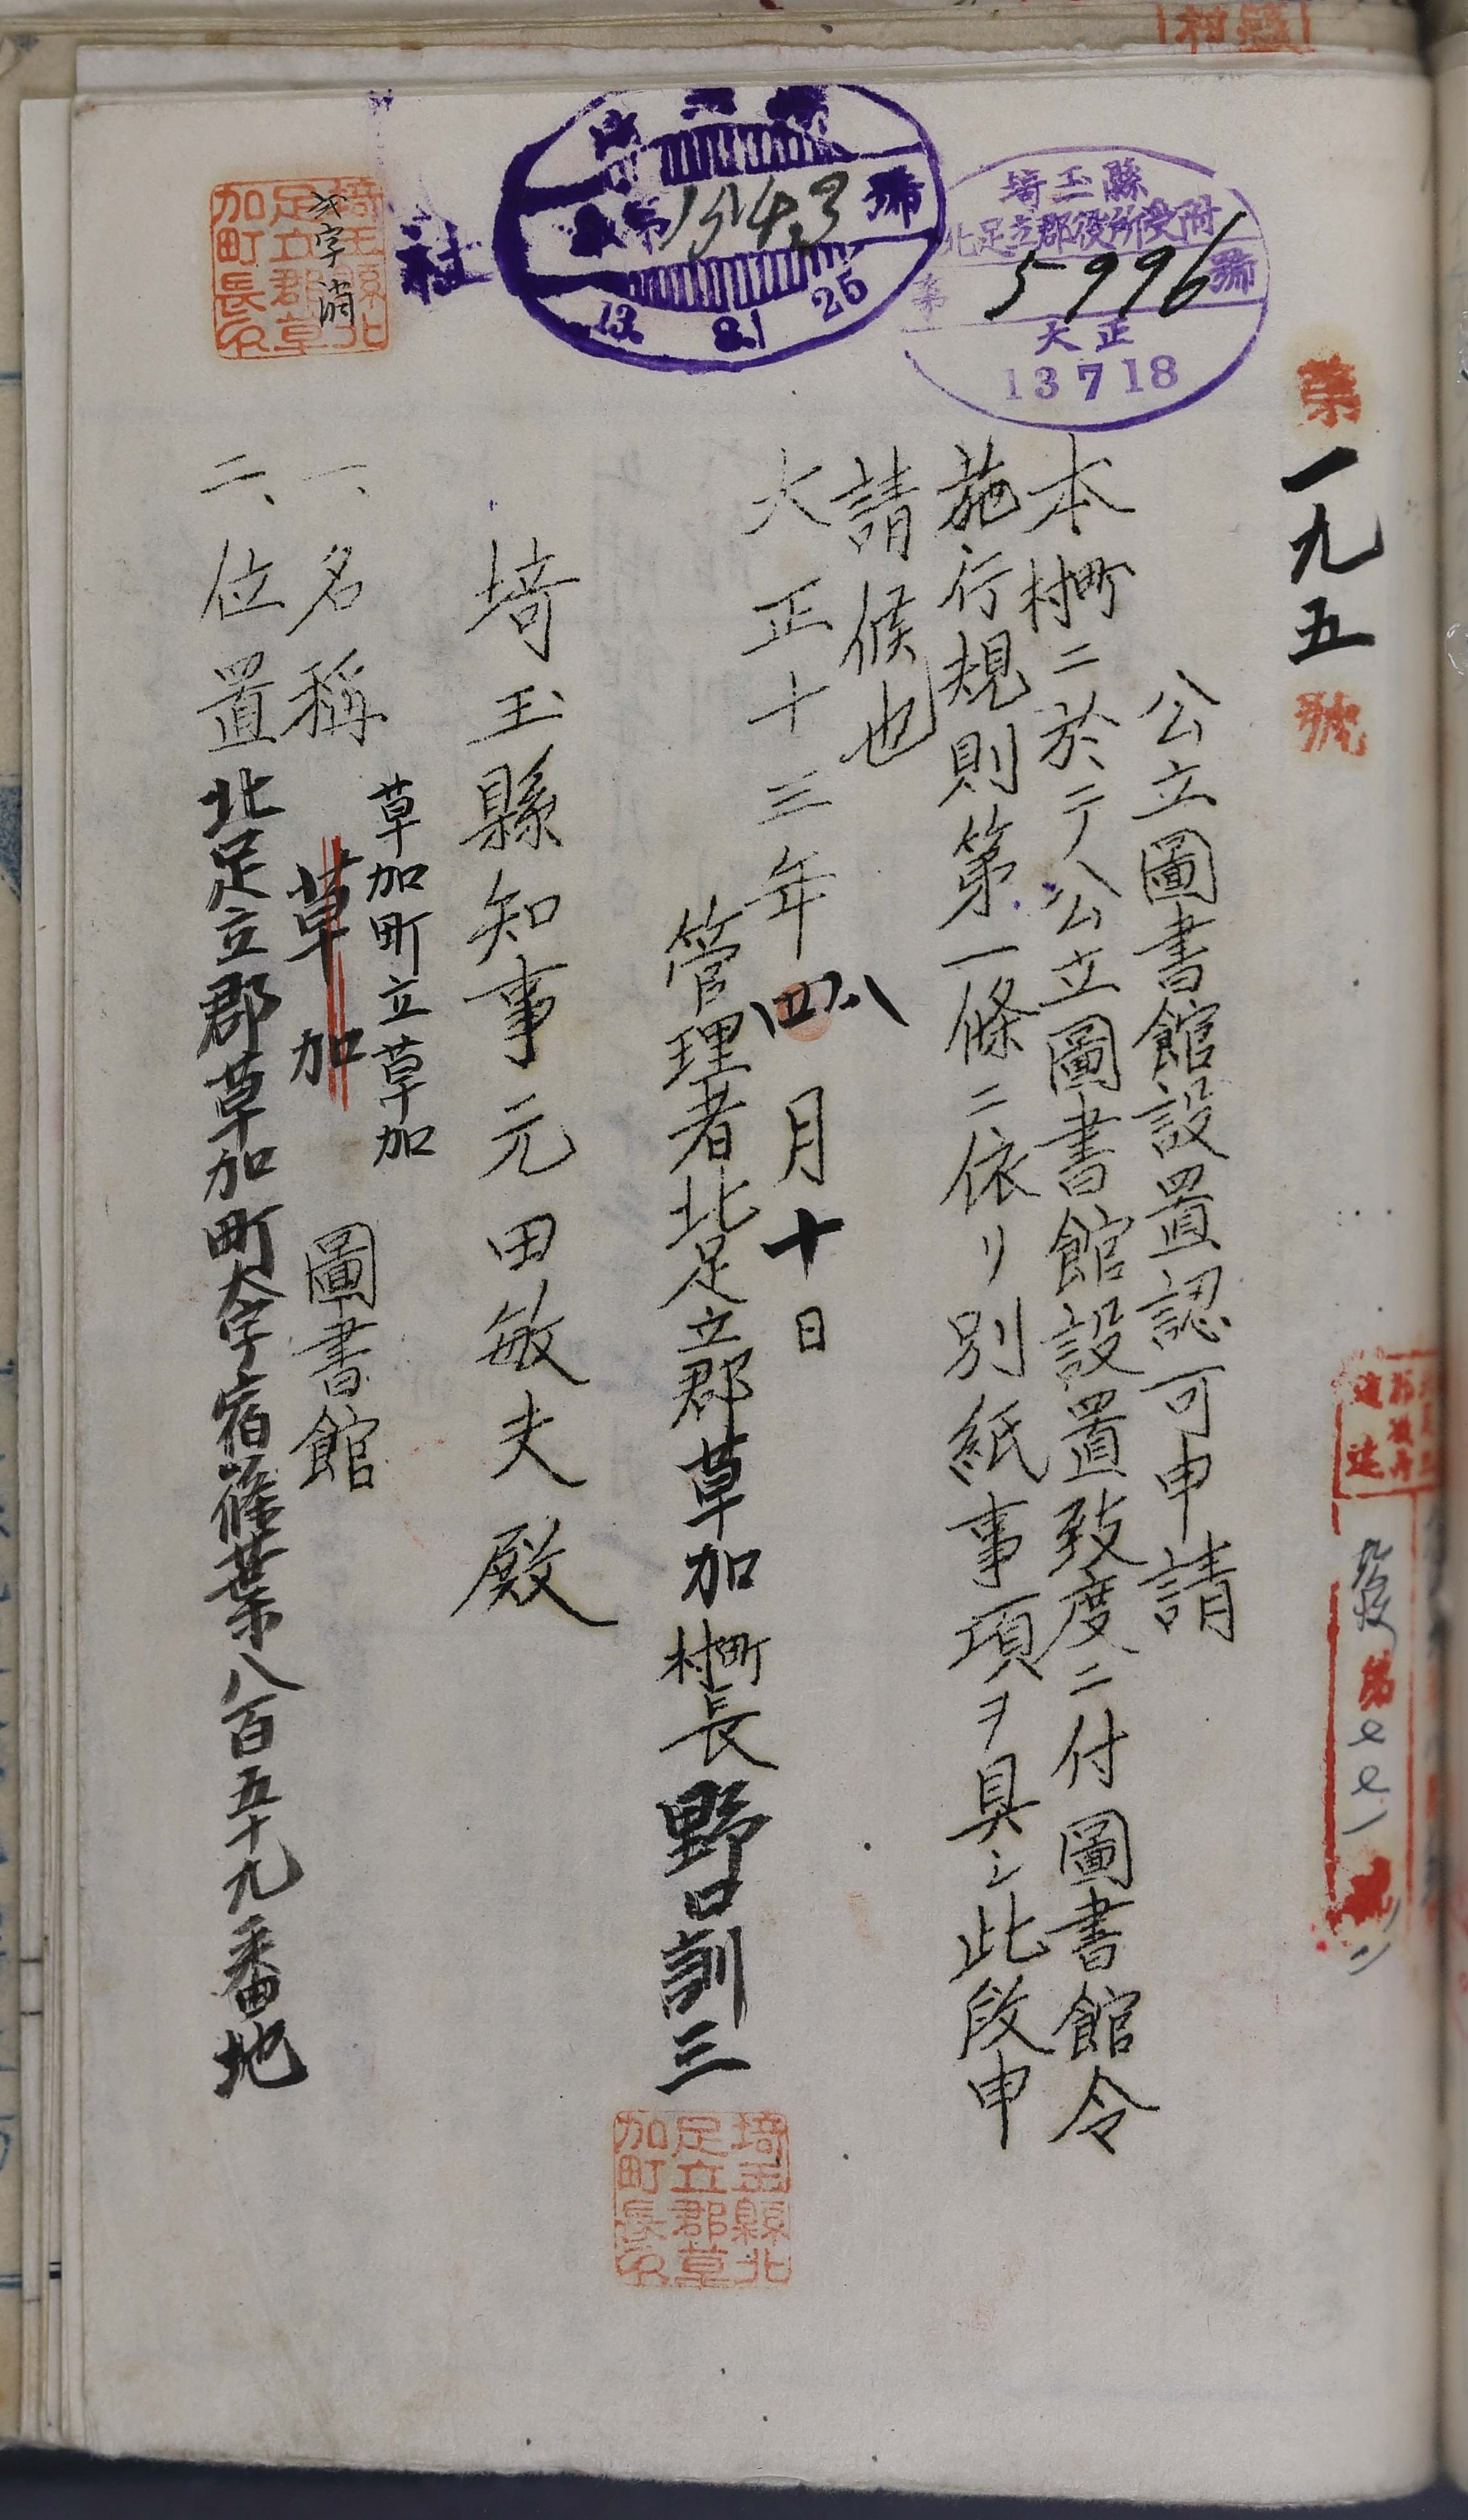 第一九五號
埼玉縣
北足立郡役所受附
第5996號
大正
13 7 18
第1543號
13 8.1 25
社
公立圖書館設置認可申請
本町村ニ於テ公立圖書館設置致度ニ付圖書館令
施行規則第一條ニ依リ別紙事項ヲ具シ此段申
請候也
大正十三年四八月十日
管理者北足立郡草加町村長野口訓三
埼玉縣北足立郡草加町長印
埼玉縣知事元田敏夫殿
一、名稱 草加 圖書館
草加町立草加
二、位置北足立郡草加町大字宿篠葉八百五十九番地
字消
埼玉縣北足立郡草加町長印